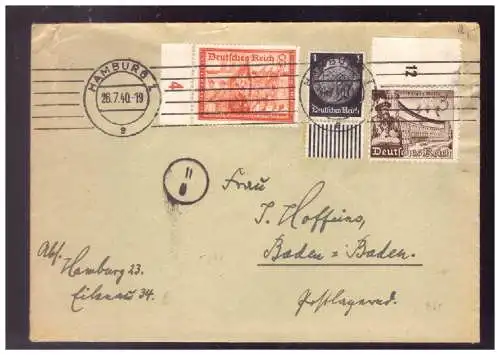 12
4
Deutsches Reich
HAMBURG 1
26.7.40.-19
e
1
Deutsches Reich
3
Deutsches Reich
Frau
J. Hoffeins,
Baden = Baden.
Postlagernd.
Abs.
Hamburg 23.
Eilenau 34.